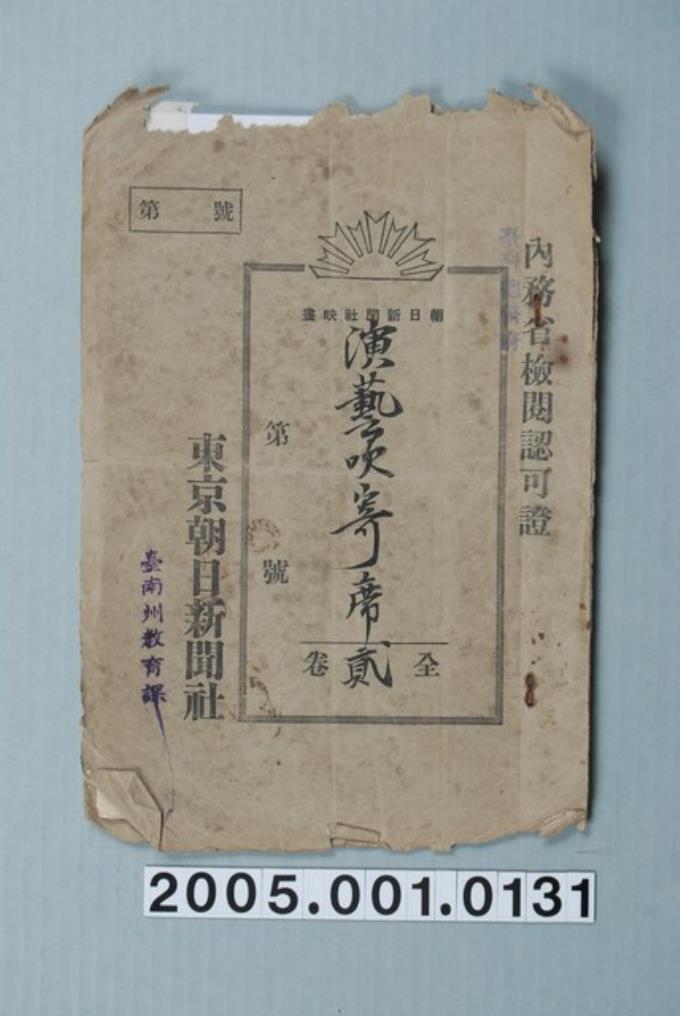 內務省檢閱認可證
臺灣總督府
朝日新聞社映畫
演藝吹寄席
全貳卷
第 號
東京朝日新聞社
第 號
臺南州教育課
2005.001.0131